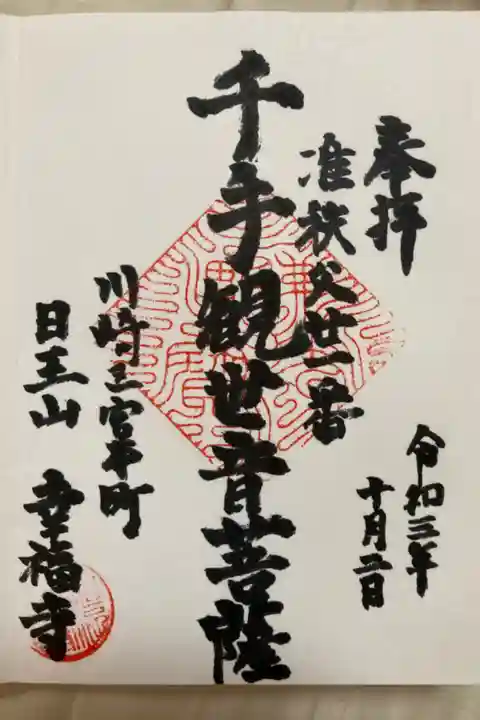 奉拝
准秩父廿一番
令和三年
十月二日
千手観世音菩薩
川崎三宮本町
日王山 幸福寺